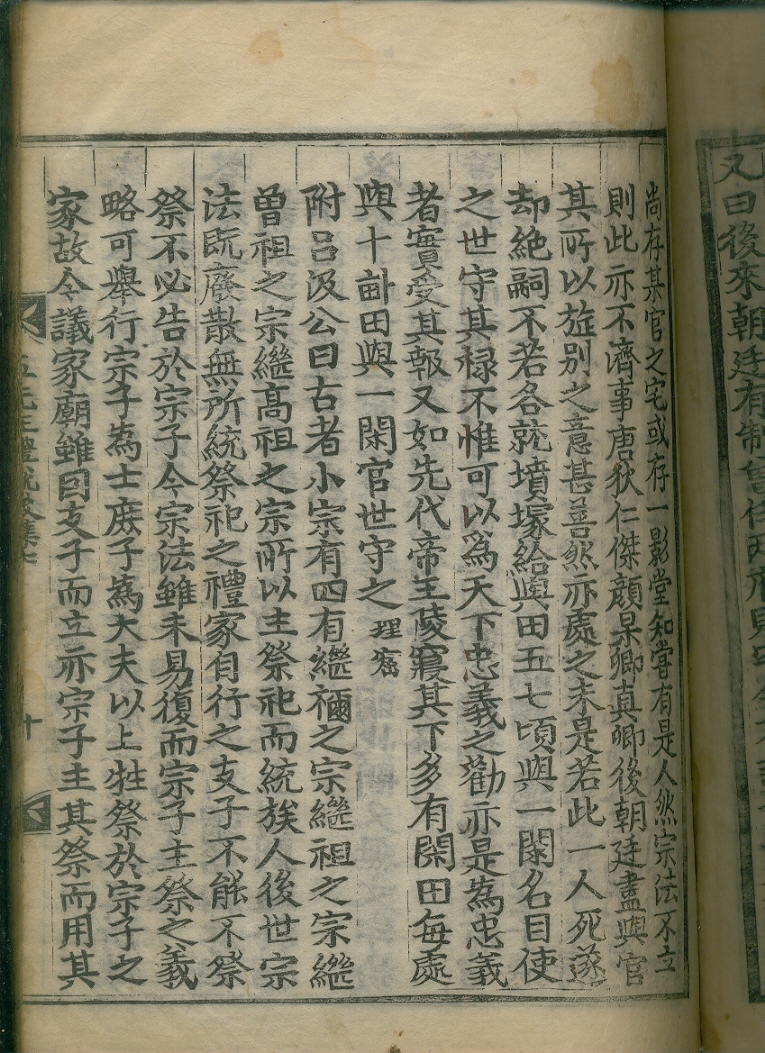 又曰後來朝廷有制曾任兩府
尚存某官之宅或存一影堂知嘗有是人然宗法不立
則此亦不濟事唐狄仁傑顔杲卿真卿後朝廷盡與官
其所以旌別之意甚善然亦處之未是若此一人死遂
却絶嗣不若各就墳塚給與田五七頃與一閑名目使
之世守其祿不惟可以爲天下忠義之勸亦是爲忠義
者實受其報又如先代帝王陵寢其下多有閑田每處
與十畝田與一閑官世守之 理窟
附呂汲公曰古者小宗有四有繼禰之宗繼祖之宗繼
曽祖之宗繼高祖之宗所以主祭祀而統族人後世宗
法既廢散無所統祭祀之禮家自行之支子不能不祭
祭不必告於宗子今宗法雖未易復而宗子主祭之義
略可舉行宗子爲士庶子爲大夫以上牲祭於宗子之
家故今議家廟雖因支子而立亦宗子主其祭而用其
五先生禮說 集七
十